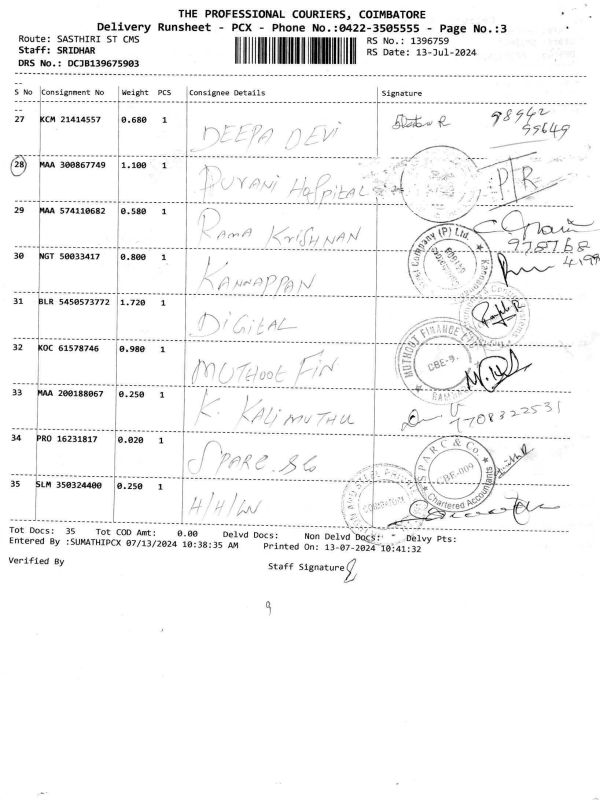 THE PROFESSIONAL COURIERS, COIMBATORE
Delivery Runsheet - PCX - Phone No.:0422-3505555 - Page No.:3
Route: SASTHIRI ST CMS
RS No.: 1396759
Staff: SRIDHAR
RS Date: 13-Jul-2024
DRS No.: DCJB139675903
S No Consignment No Weight PCS Consignee Details Signature
27 KCM 21414557 0.680 1 DEEPA DEVI 98942 99649
28 MAA 300867749 1.100 1 PURANI HOSPITAL P/R
29 MAA 574110682 0.580 1 RAMA KRISHNAN
978768
30 NGT 50033417 0.800 1 KANNAPPAN
31 BLR 5450573772 1.720 1 DIGITAL
32 KOC 61578746 0.980 1 MUTHOOT FIN
MUTHOOT FINANCE
CBE-9.
33 MAA 200188067 0.250 1 K. KALIMUTHU 7708322531
34 PRO 16231817 0.020 1 SPARC &Co
SPARC & Co.
CBE-009
Chartered Accountants
35 SLM 350324400 0.250 1 H/H/W
Tot Docs: 35 Tot COD Amt: 0.00 Delvd Docs: Non Delvd Docs: Delvy Pts:
Entered By :SUMATHIPCX 07/13/2024 10:38:35 AM Printed On: 13-07-2024 10:41:32
Verified By
Staff Signature
9